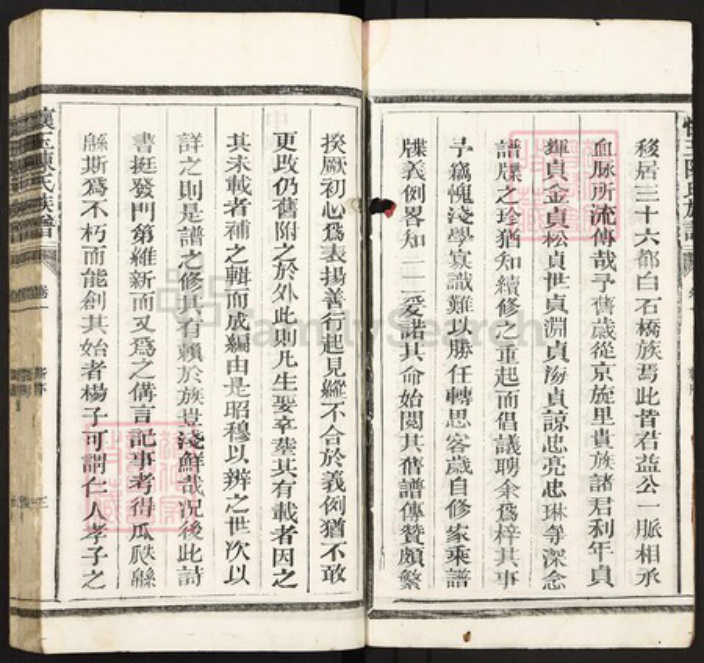 移居三十六都白石橋族焉此皆君益公一脈相承
血脉所流傳哉予舊歲從京旋里貴族諸君利年貞
輝貞金貞松貞世貞淵貞海貞諒忠亮忠琳等深念
譜牒之珍猶知續修之重起而倡議聘余爲梓其事
予竊愧淺學寡識難以勝任轉思客歲自修家乘譜
牒義例畧知一二爰諾其命始閱其舊譜傳贊頗繁
揆厥初心爲表揚善行起見縱不合於義例猶不敢
更改仍舊附之於外此則凡生娶卒塟其有載者因之
其未載者補之輯而成編由是昭穆以辨之世次以
詳之則是譜之修其有賴於族豈淺鮮哉况後此詩
書挺發門第維新而又爲之備言記事考得瓜瓞緜
緜斯爲不朽而能創其始者楊子可謂仁人孝子之
陳氏族譜
卷一
FamilySearch